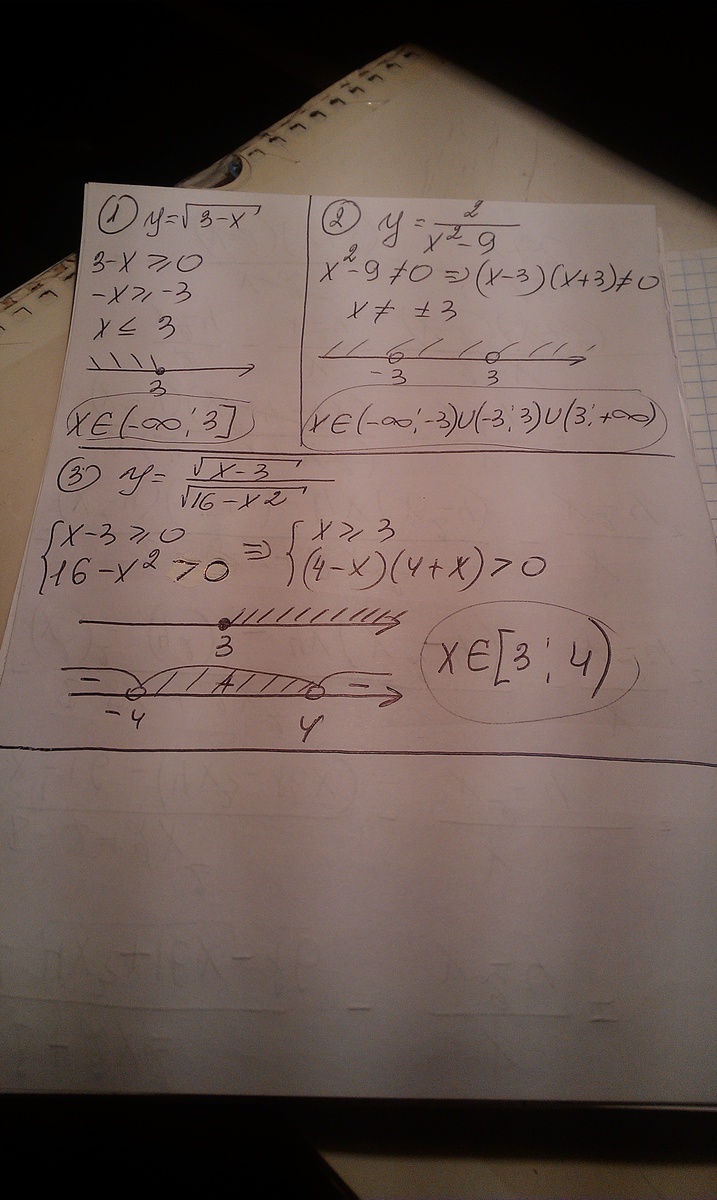 ① y=√(3-x)
3-x ⩾ 0
-x ⩾ -3
x ≤ 3
3
x∈(-∞; 3]
② y = 2/(x²-9)
x²-9≠0 ⇒ (x-3)(x+3)≠0
x ≠ ±3
-3 3
x∈(-∞;-3)∪(-3;3)∪(3;+∞)
③ y = √(x-3)/√(16-x²)
{x-3 ⩾ 0 ⇒ {x ⩾ 3
{16-x² > 0 {(4-x)(4+x) > 0
3
- + -
-4 4
x∈[3; 4)